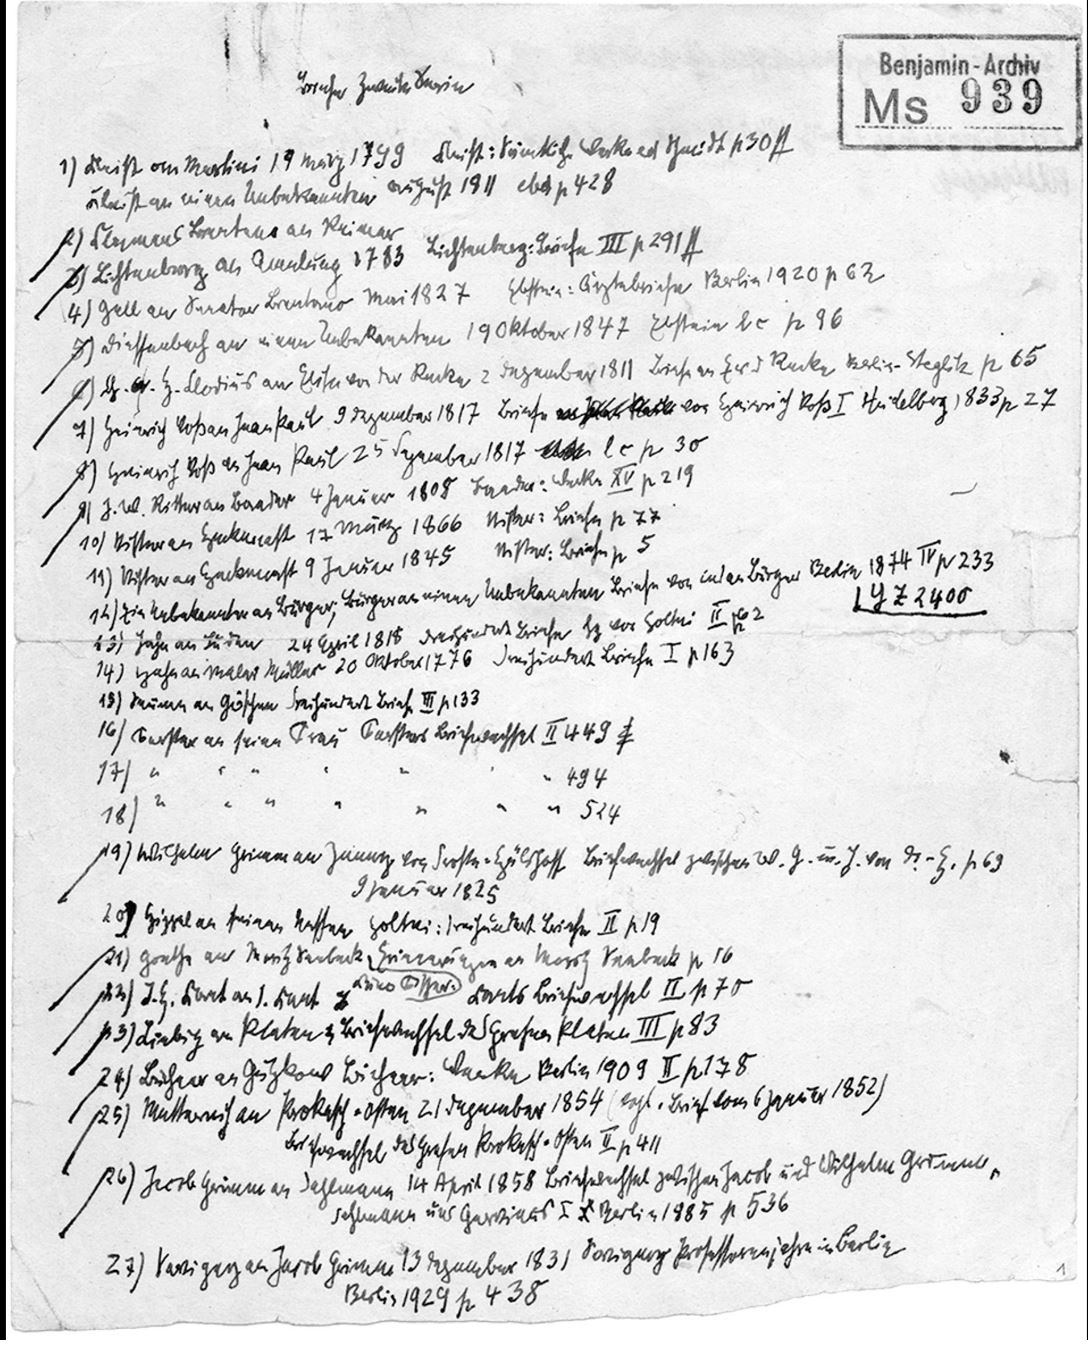 Benjamin-Archiv
Ms 939
Briefe Zweite Serie
1) Kleist an Martini 19 März 1799 Kleist: Sämtliche Werke ed Schmidt p 30 ff
Kleist an einen Unbekannten August 1811 ebd p 428
2) Clemens Brentano an Reimer
3) Lichtenberg an Amelung 1783 Lichtenberg: Briefe III p 291 ff
4) Gall an Senator Brentano Mai 1827 Ebstein: Ärztebriefe Berlin 1920 p 62
5) Dieffenbach an einen Unbekannten 19 Oktober 1847 Ebstein l c p 96
6) Ch. A. H. Clodius an Elisa von der Recke 2 Dezember 1811 Briefe an E v d Recke Berlin-Steglitz p 65
7) Heinrich Voß an Jean Paul 9 Dezember 1817 Briefe von Heinrich Voß I Heidelberg 1833 p 27
8) Heinrich Voß an Jean Paul 25 Dezember 1817 l c p 30
9) J. W. Ritter an Baader 4 Januar 1808 Baader: Werke XV p 219
10) Stifter an Heckenast 17 März 1866 Stifter: Briefe p 77
11) Stifter an Heckenast 9 Januar 1845 Stifter: Briefe p 5
12) Ein Unbekannter an Bürger; Bürger an einen Unbekannten Briefe von und an Bürger Berlin 1874 IV p 233
| Yz 2400
13) Jahn an 24 April 1818 Dreihundert Briefe hg von Holtei II p 62
14) Hahn an Maler Müller 20 Oktober 1776 Dreihundert Briefe I p 163
15) Seume an Göschen Dreihundert Briefe III p 133
16) Forster an seine Frau Forsters Briefwechsel II 449 f
17) " " " " " " " 494
18) " " " " " " " 524
19) Wilhelm Grimm an Jenny von Droste-Hülshoff Briefwechsel zwischen W. G. u. J. von D.-H. p 69
9 Januar 1825
20) Hippel an seinen Neffen Holtei: Dreihundert Briefe II p 19
21) Goethe an Moritz Seebeck Erinnerungen an Moritz Seebeck p 16
Kuno Fischer:
22) J. H. Kant an I. Kant Kants Briefwechsel II p 70
23) Liebig an Platen Briefwechsel des Grafen Platen III p 83
24) Büchner an Gutzkow Büchner: Werke Berlin 1909 II p 178
25) Metternich an Prokesch-Osten 21 Dezember 1854 (vgl. Brief vom 6 Januar 1852)
Briefwechsel des Grafen Prokesch-Osten II p 411
26) Jacob Grimm an Dahlmann 14 April 1858 Briefwechsel zwischen Jacob und Wilhelm Grimm,
Dahlmann und Gervinus I Berlin 1885 p 536
27) Savigny an Jacob Grimm 13 Dezember 1831 Savignys Professorenjahre in Berlin
Berlin 1929 p 438
1